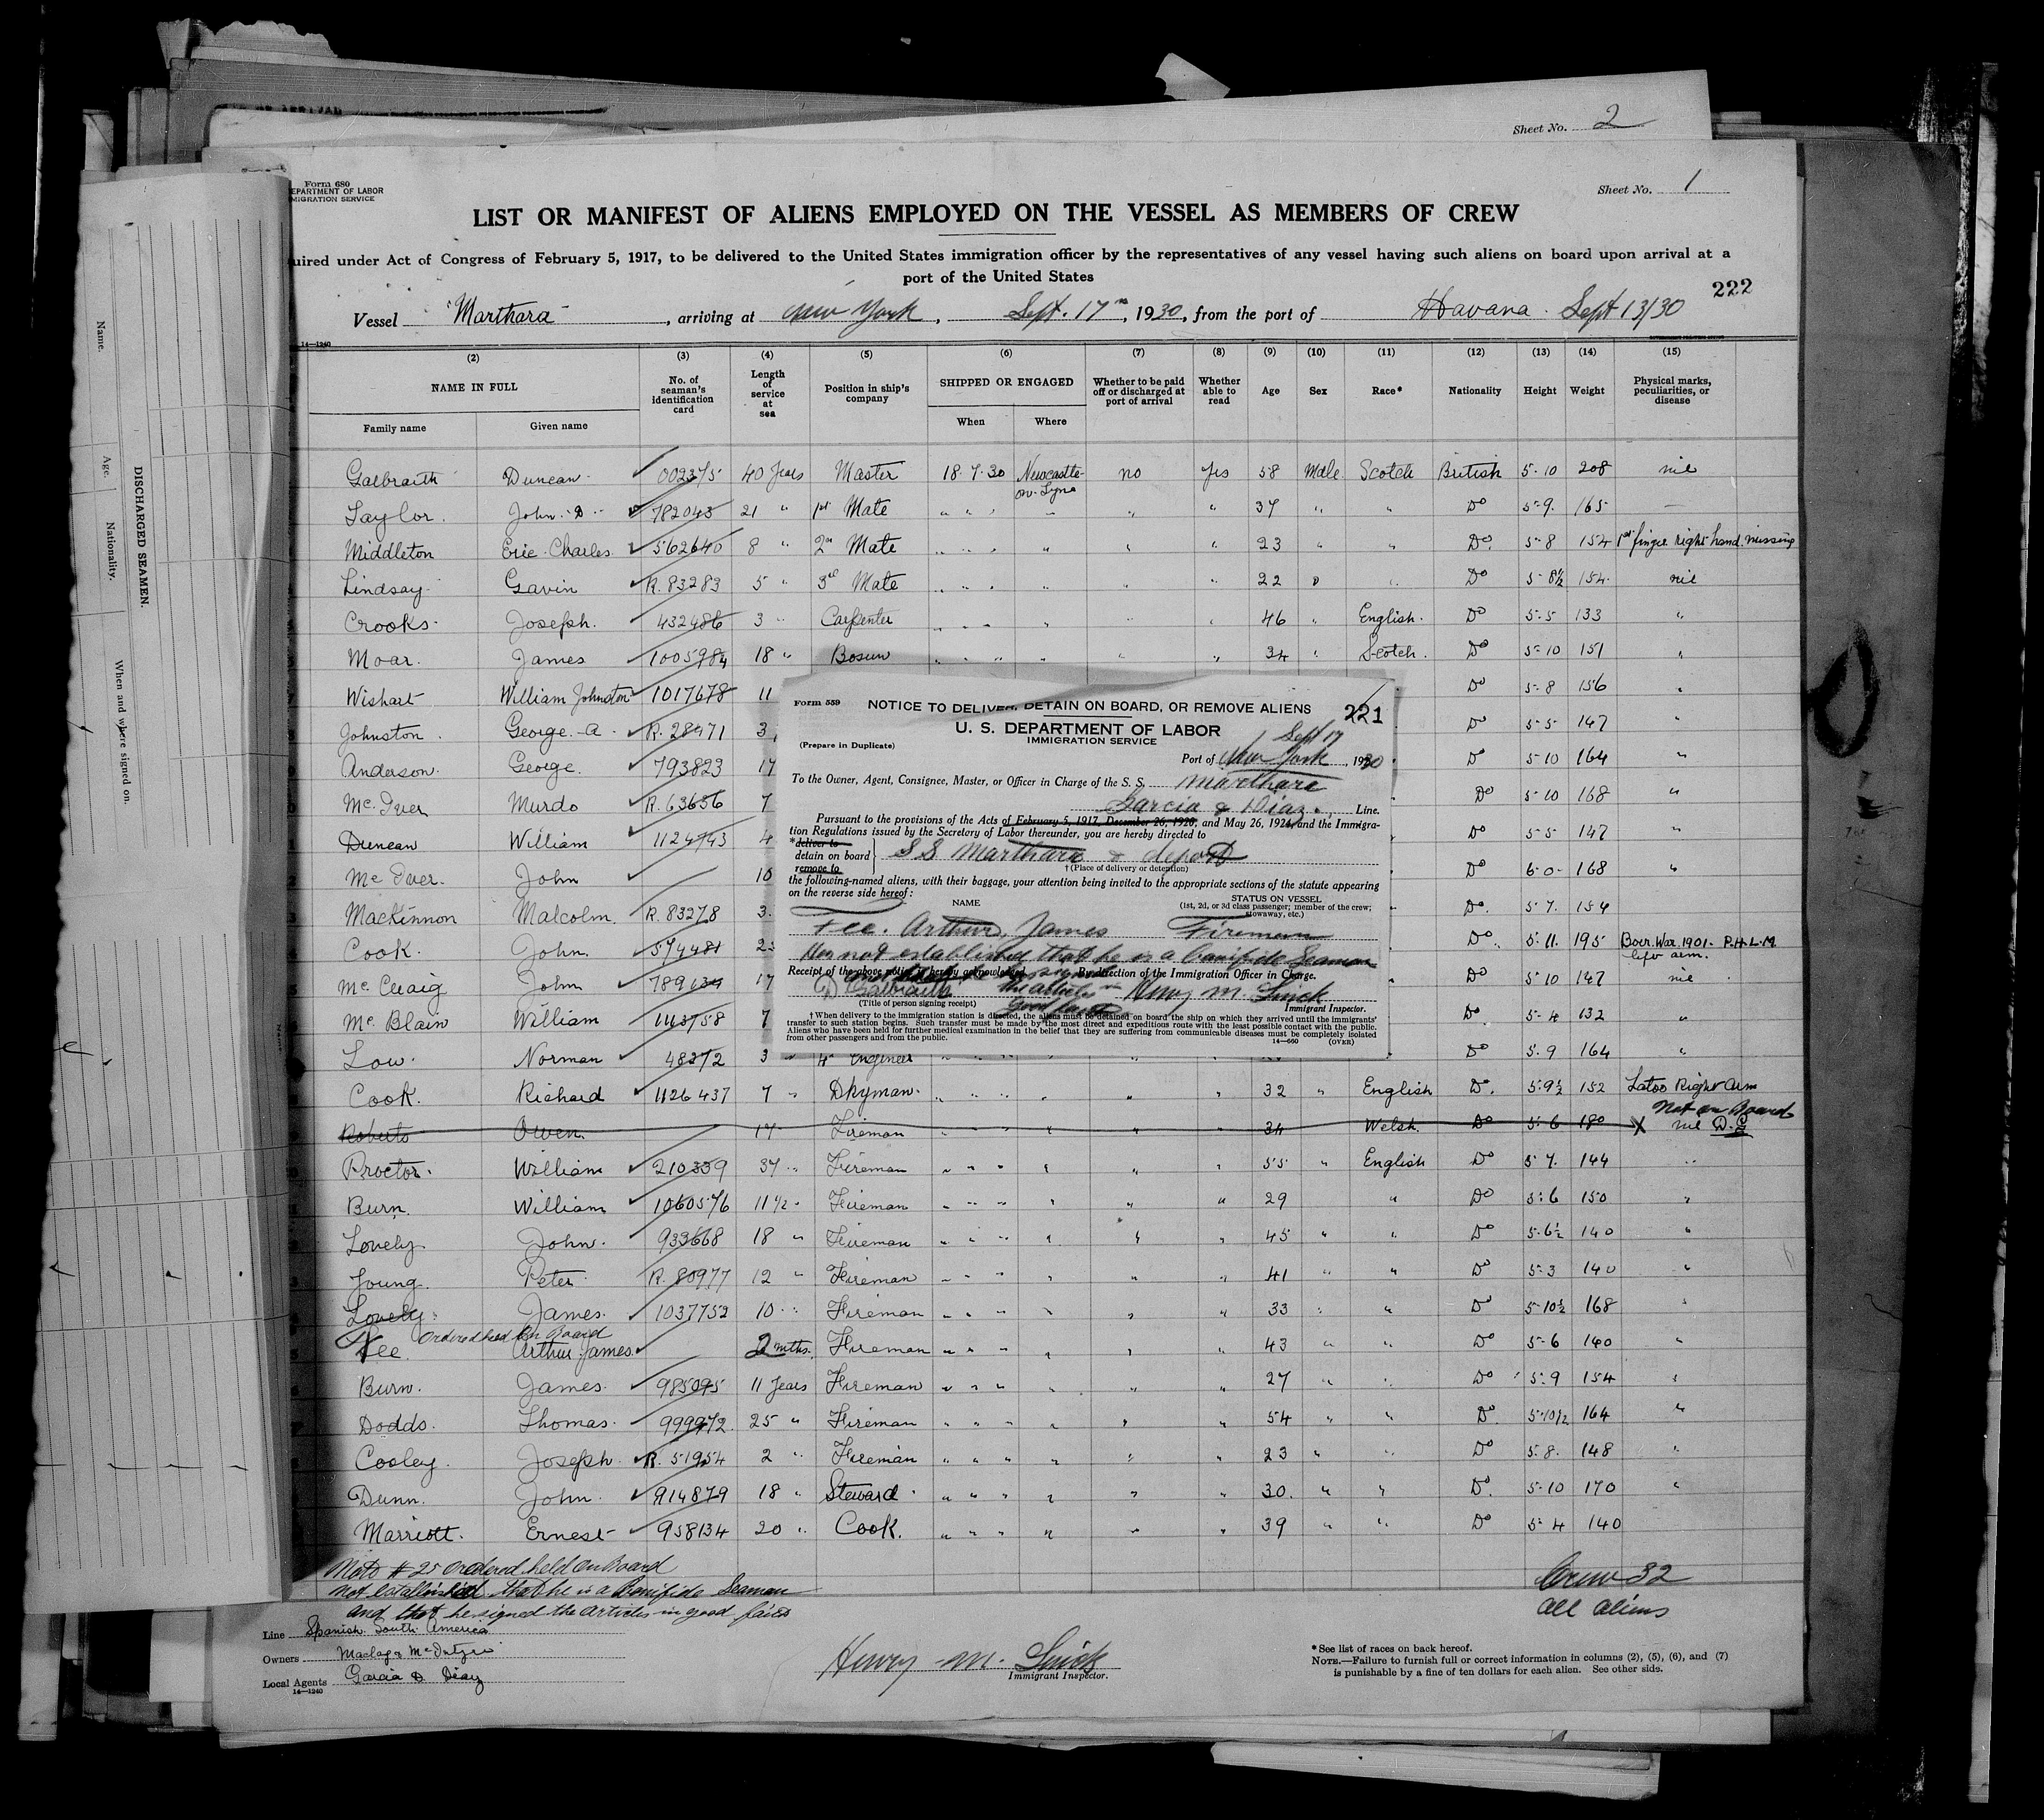 Sheet No. 2
Form 680
DEPARTMENT OF LABOR
IMMIGRATION SERVICE
Sheet No. 1
LIST OR MANIFEST OF ALIENS EMPLOYED ON THE VESSEL AS MEMBERS OF CREW
uired under Act of Congress of February 5, 1917, to be delivered to the United States immigration officer by the representatives of any vessel having such aliens on board upon arrival at a
port of the United States
222
Vessel "Marthara", arriving at New York, Sept. 17th, 1930, from the port of Havana. Sept 13/30
14—1240
(2) (3) (4) (5) (6) (7) (8) (9) (10) (11) (12) (13) (14) (15)
NAME IN FULL No. of seaman's identification card Length of service at sea Position in ship's company SHIPPED OR ENGAGED Whether to be paid off or discharged at port of arrival Whether able to read Age Sex Race* Nationality Height Weight Physical marks, peculiarities, or disease
Family name Given name When Where
Galbraith Duncan 002375 40 Years Master 18.7.30 Newcastle-on-Tyne no yes 58 Male Scotch British 5-10 208 nil
Taylor John D 782043 21 " 1st Mate " " " " " " 37 " " Do 5-9 165 —
Middleton Eric Charles 562640 8 " 2nd Mate " " " " " " 23 " " Do 5-8 154 1st finger right hand missing
Lindsay Gavin R.83283 5 " 3rd Mate " " " " " " 22 " " Do 5-8½ 154 nil
Crooks Joseph 432486 3 " Carpenter " " " " " " 46 " English Do 5-5 133 "
Moar James 1005984 18 " Bosun " " " " " " 34 " Scotch Do 5-10 151 "
Wishart William Johnston 1017678 11 Do 5-8 156 "
Johnston George A R.28471 3 Do 5-5 147 "
Anderson George 793823 17 Do 5-10 164 "
McIver Murdo R.63656 7 Do 5-10 168 "
Duncan William 1124743 4 Do 5-5 147 "
McIver John 10 Do 6-0 168 "
MacKinnon Malcolm R.83278 3 Do 5-7 154
Cook John 574481 Do 5-11 195 Boer War 1901. P.H.L.M left arm.
McCuaig John 789134 17 Do 5-10 147 nil
McBlain William 143758 7 Do 5-4 132 "
Low Norman 48372 3 " 4th Engineer " " " " " " Do 5-9 164 "
Cook Richard 1126437 7 " Dkyman " " " " " " 32 " English Do 5-9½ 152 Tatoo Right arm
Roberts Owen 17 Fireman " " " " " " 34 Welsh Do 5-6 180 X nil Not on Board D.G
Proctor William 210339 37 " Fireman " " " " " " 55 " English Do 5-7 144 "
Burn William 1060576 11½ " Fireman " " " " " " 29 " Do 5-6 150 "
Lovely John 933668 18 " Fireman " " " " " " 45 " " Do 5-6½ 140 "
Young Peter R.80977 12 " Fireman " " " " " " 41 " " Do 5-3 140 "
Lovely James 1037752 10 " Fireman " " " " " " 33 " " Do 5-10½ 168 "
Ordered held on Board
Fee Arthur James 2 mths. Fireman " " " " " " 43 " " Do 5-6 140 "
Burn James 985095 11 Years Fireman " " " " " " 27 " " Do 5-9 154 "
Dodds Thomas 999972 25 " Fireman " " " " " " 54 " " Do 5-10½ 164 "
Cooley Joseph R.51954 2 " Fireman " " " " " " 23 " " Do 5-8 148 "
Dunn John 914879 18 " Steward " " " " " " 30 " " Do 5-10 170 "
Marriott Ernest 958134 20 " Cook " " " " " " 39 " " Do 5-4 140
Note # 25 ordered held on Board
not established that he is a Bonifide Seaman
and that he signed the Articles in good faith
Crew 32
All aliens
Line Spanish South America
Owners
Local Agents Garcia & Diaz
14—1240
Henry M.
Immigrant Inspector.
*See list of races on back hereof.
NOTE.—Failure to furnish full or correct information in columns (2), (5), (6), and (7)
is punishable by a fine of ten dollars for each alien. See other side.
Form 559
NOTICE TO DELIVER, DETAIN ON BOARD, OR REMOVE ALIENS
221
U. S. DEPARTMENT OF LABOR
IMMIGRATION SERVICE
(Prepare in Duplicate)
Sept 17
Port of New York, 1930
To the Owner, Agent, Consignee, Master, or Officer in Charge of the S. S. Marthara
Garcia & Diaz Line.
Pursuant to the provisions of the Acts of February 5, 1917, December 26, 1920, and May 26, 1924, and the Immigra-
tion Regulations issued by the Secretary of Labor thereunder, you are hereby directed to
*deliver to
detain on board
remove to
SS Marthara & deport
†(Place of delivery or detention)
the following-named aliens, with their baggage, your attention being invited to the appropriate sections of the statute appearing
on the reverse side hereof:
NAME STATUS ON VESSEL
(1st, 2d, or 3d class passenger; member of the crew; stowaway, etc.)
Fee. Arthur, James Fireman
Has not established that he is a bonifide Seaman
and that he signed
the articles in
good faith
Receipt of the above notice is hereby acknowledged. By direction of the Immigration Officer in Charge.
D Galbraith Henry M.
(Title of person signing receipt) Immigrant Inspector.
†When delivery to the immigration station is directed, the aliens must be detained on board the ship on which they arrived until the immigrants'
transfer to such station begins. Such transfer must be made by the most direct and expeditious route with the least possible contact with the public.
Aliens who have been held for further medical examination in the belief that they are suffering from communicable diseases must be completely isolated
from other passengers and from the public.
14—660 (OVER)
DISCHARGED SEAMEN.
Name. Age. Nationality. When and where signed on.